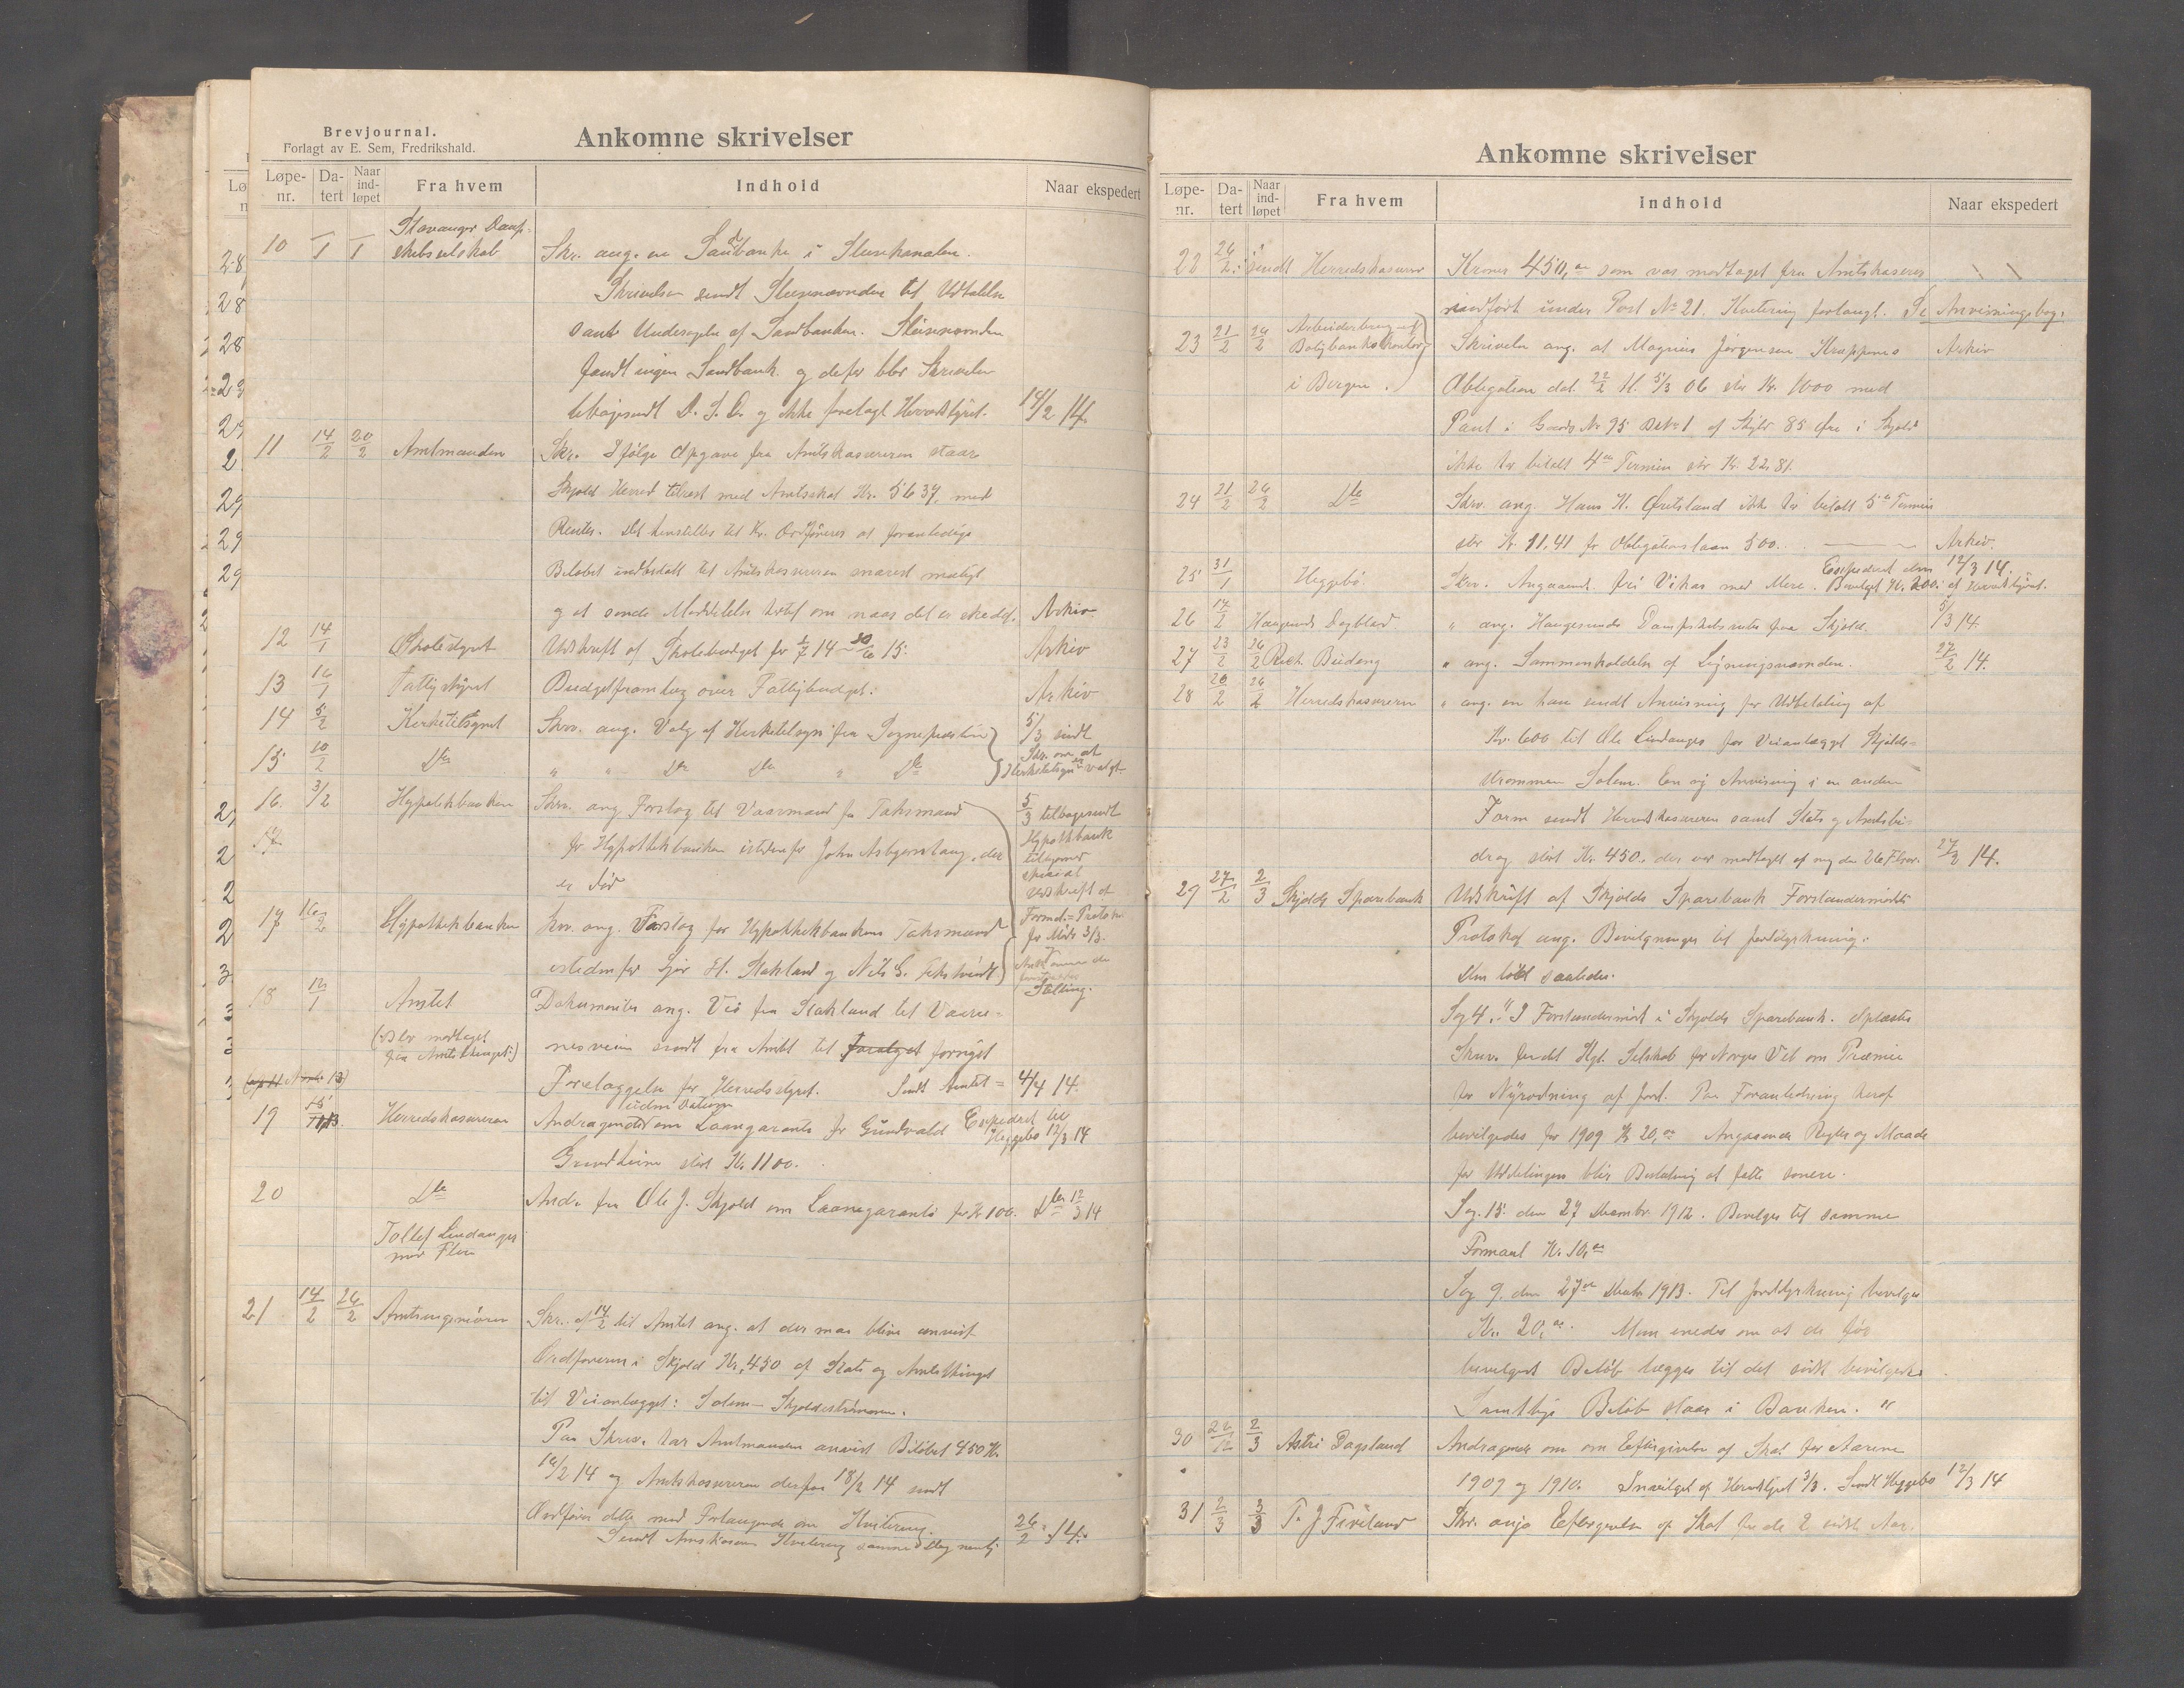 Brevjournal.
Forlagt av E. Sem, Fredrikshald.
Ankomne skrivelser
Løpe-nr. Da-tert Naar ind-løpet Fra hvem Indhold Naar ekspedert
Stavanger Damp-
10 1 1 skibsselskab Skr. ang. en Sandbanke i Slusekanalen.
Skrivelsen sendt Slusenævnden til Udtalelse
samt Undersøgelse af Sandbanken. Slusenævnden
fandt ingen Sandbank og derfor blev Skrivelsen
tilbagesendt D. S. D. og ikke forelagt Herredsstyret. 14/2 14.
11 14/2 20/2 Amtmanden Skr. Ifølge Opgave fra Amtskassereren staar
Skjold Herred tilrest med Amtsskat Kr. 5637, med
Renter. Det henstilles til Hr. Ordføreren at foranledige
Beløbet indbetalt til Amtskassereren snarest muligt
og at sende Meddelelse hertil om naar det er skeddt. Arkiv
12 14/1 Skolestyret Udskrift af Skolebudget for 1/7 14 - 30/6 15. Arkiv
13 16/1 Fattigstyret Budgetframleg over Fattigbudget. Arkiv
14 5/2 Kirketilsynet Skrv. ang. Valg af Kirketilsyn fra Sognepræsten 5/3 sendt
15 10/2 Do " " Do Do " Do Skr. om at Kirketilsyn er valgt.
16. 3/2 Hypotekbanken Skrv. ang. Forslag til Varamand for Takstmand 5/3 tilbagesendt
for Hypothekbanken istedenfor John Asbjørn, der Hypothbank
er død
17 16/2 Hypothekbanken Skrv. ang. Forslag for Hypothekbankens Takstmænd for Møde 3/3.
istedenfor Sjur H. Stakland og Nils G.
18 12/1 Amtet Dokumenter ang. Vei fra Stakland til
(Blev modtaget
paa Amtsthinget) nesveien sendt fra Amtet til fornyet
Forelæggelse for Herredsstyret. Sendt Amtet = 4/4 14.
uden Datum
19 Herredskassereren Andragende om Laangaranti for Gundvald Expedert til Heggebø 12/3 14
Grindheim stort Kr. 1100.
20 Do Andr. fra Ole J. Skjold om Laanegaranti for Kr 100. Do 12/3 14
21 14/2 26/2 Amtsingeniøren Skr. af 14/2 til Amtet ang. at der maa blive anvist
Ordføreren i Skjold Kr. 450 af Stats og Amtsthinget
til Veianlægget: Solem - Skjoldestrømmen.
Paa Skriv. har Amtmanden anvist Beløbet 450 Kr.
16/2 14 og Amtskassereren derpaa 18/2 14 sendt
Ordføreren dette med Forlangende om Kvittering.
Sendt Amtskasseren Kvittering samme Dag nemlig 26/2 14.
Ankomne skrivelser
Løpe-nr. Da-tert Naar ind-løpet Fra hvem Indhold Naar ekspedert
22 26/2 sendt Herredskasserer Kroner 450,00 som var modtaget fra Amtskasserer
indført under Post No 21. Kvittering forlangt. Se Anvisningsbog.
23 21/2 26/2 Arbeiderbrug og
Boligbanks Kontor
i Bergen. Skrivelse ang. at Magnus Jørgensen Arkiv
Obligation dat. 22/2 Tl. 5/3 06 stor Kr. 1000 med
Pant i Gaards No 95 Bno 1 af Skyld 85 Øre i Skjold
ikke har betalt 4de Termin stor Kr. 22,81.
24 21/2 26/2 Do Skrv. ang. Hans H. Øvetsland ikke har betalt 5te Termin
stor Kr. 11.41 for Obligationslaan 500. Arkiv.
25 31/1 Heggebø Skrv. Angaaende fri Vikar med Mere. Expederet den 12/3 14. Bevilget Kr. 200 af Herredsstyret.
26 17/2 Haugesunds Dagblad " ang. Haugesunds Dampskibsrute paa Skjold. 5/3 14.
27 23/2 26/2 Rich. Bieding " ang. Sammenkaldelse af Ligningsnævnden. 27/2 14.
28 20/2 26/2 Herredskassereren " ang. en ham sendt Anvisning for Udbetaling af
Kr. 600 til Ole Lindanger for Veianlægget Skjolde-
strømmen Solem. En ny Anvisning i en anden
Form sendt Herredskassereren samt Stats og Amtsbi-
drag stort Kr. 450. der var modtaget af mig den 26 Febr. 27/2 14.
29 27/2 2/3 Skjolds Sparebank Udskrift af Skjolds Sparebank Forstandermøtes
Protokol ang. Bevilgninger til Jorddyrkning.
Den lød saaledes.
Sag 4. "I Forstandermøte i Skjolds Sparebank. Oplæstes
Skriv. fra det Kgl. Selskab for Norges Vel om Præmie
for Nyrodning af Jord. Paa Foranledning heraf
bevilgedes for 1909 Kr 20,00 Angaaende Regler og Maade
for Uddelingen blir Beslutning at fatte senere.
Sag. 15. den 27 Decembr. 1912. Bevilges til samme
Formaal Kr. 10,00
Sag 9. den 27de Decbr 1913. Til Jorddyrkning bevilges
Kr. 20,00. Man enedes om at de før
bevilgede Beløb lægges til det sidst bevilgede.
Samtlige Beløb staar i Banken. "
30 22/12 2/3 Astri Dagsland Andragende om om Eftergivelse af Skat for Aarene
1909 og 1910. Indvilget af Herredstyret 3/3. Sendt Heggebø 12/3 14
31 2/3 3/3 T. J. Fiveland Skr. anga Eftergivelse af Skat for de 2 sidste Aar.